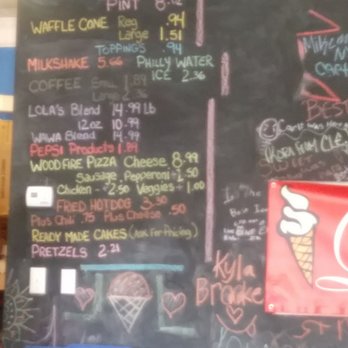 PINT 8.02
WAFFLE CONE Reg .94
Large 1.51
TOPPINGS .94
MILKSHAKE 5.66 PHILLY WATER
ICE 2.36
COFFEE Sm. 1.89
Large 2.36
LOLA'S Blend 14.99 Lb
12oz 10.99
WAWA Blend 14.99
PEPSI Products 1.89
WOODFIRE PIZZA Cheese 8.99
Sausage, Pepperoni + 1.50
Chicken + 2.50 Veggies + 1.00
FRIED HOTDOG 3.30
Plus Chili .75 Plus Cheese .50
READY MADE CAKES (Ask For Pricing)
PRETZELS 2.21
BES
In The
Kyla
Brooke